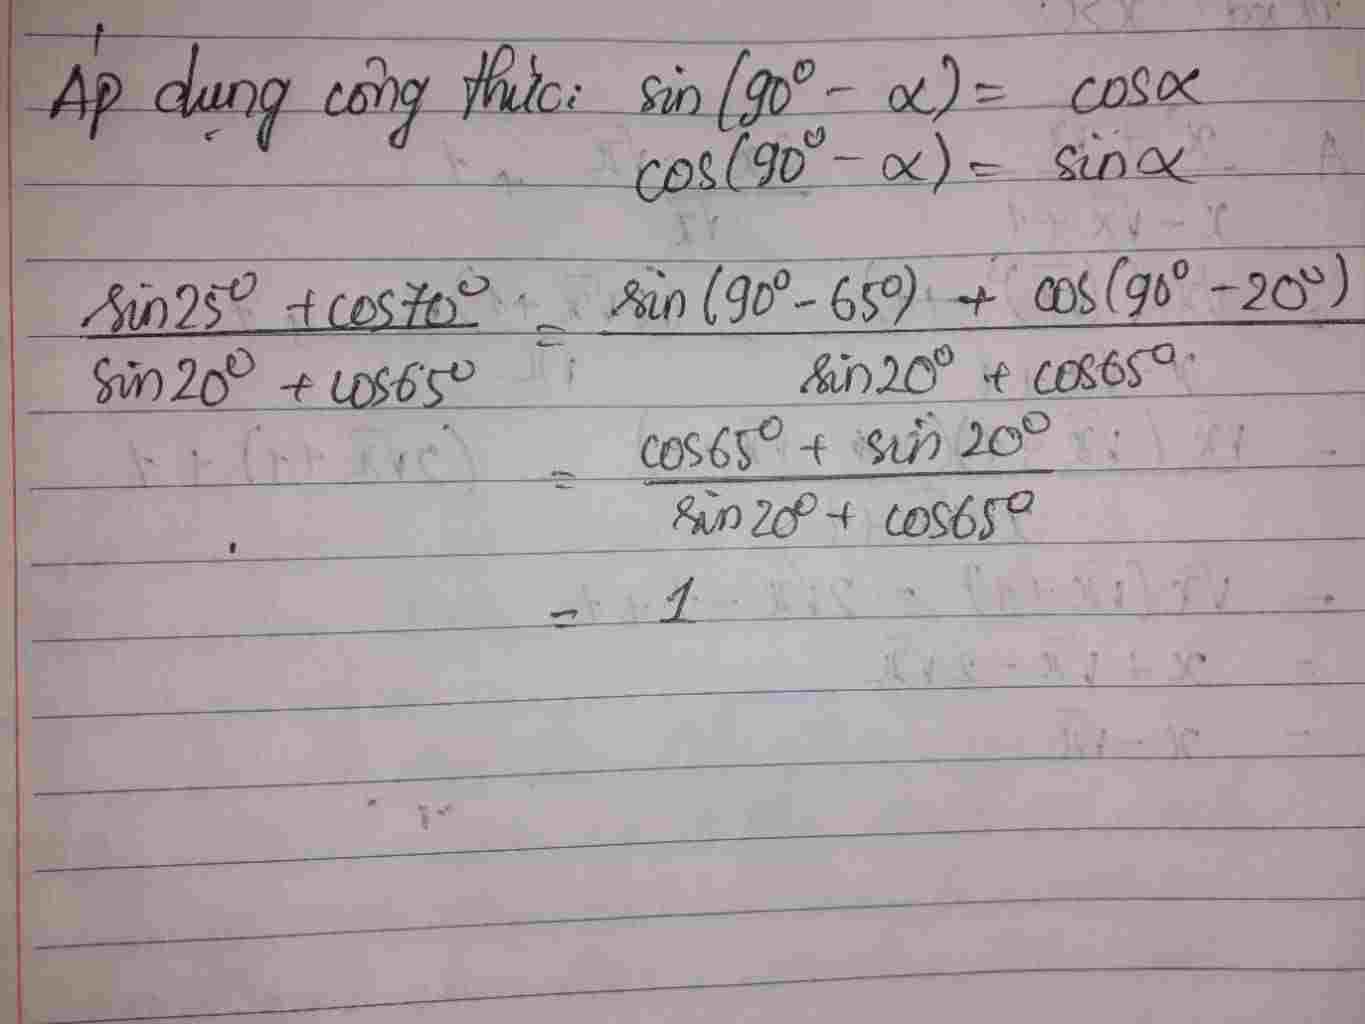 Áp dụng công thức: sin(90⁰ - α) = cosα
cos(90⁰ - α) = sinα
sin25⁰ + cos70⁰ / sin20⁰ + cos65⁰ = sin(90⁰ - 65⁰) + cos(90⁰ - 20⁰) / sin20⁰ + cos65⁰
= cos65⁰ + sin20⁰ / sin20⁰ + cos65⁰
= 1